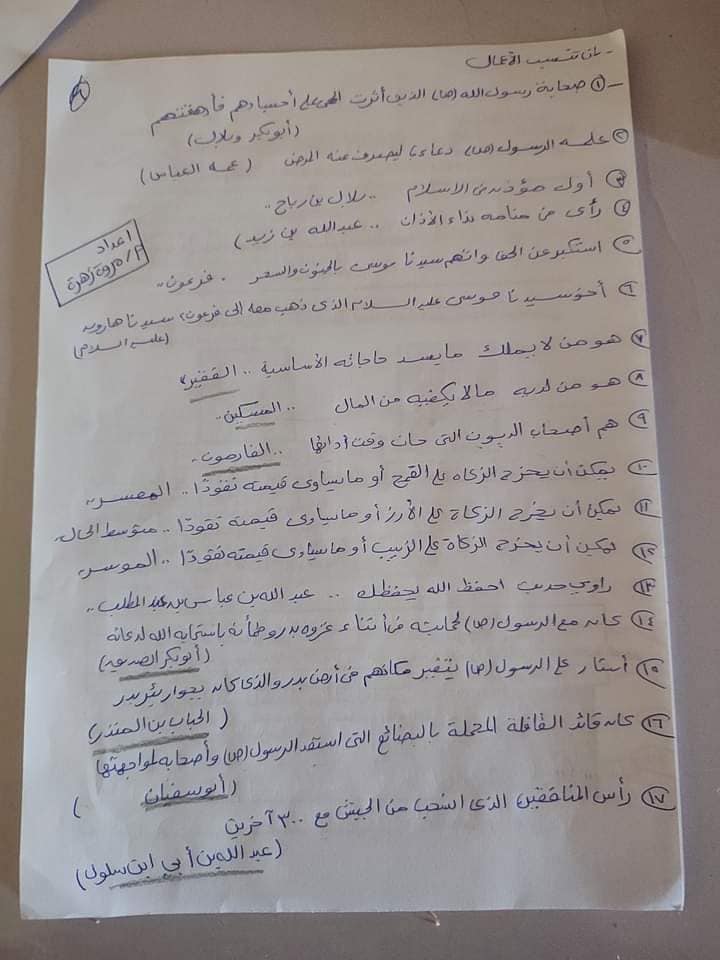 - بانتسب الأعمال
٩
- ① صحابة رسول الله (ص) الذين أثرت الحمى على أجسادهم فأرهقتهم
(أبوبكر وبلال)
② علمه الرسول (ص) دعاءًا ليصرف عنه المرض (عمه العباس)
③ أول مؤذن فى الاسلام .. بلال بن رباح ..
④ رأى من منامه نداء الأذان .. عبدالله بن زيد)
اعداد
م/ مروة زهرة
⑤ استكبر عن الحق واتهم سيدنا موسى بالجنون والسحر . فرعون ..
⑥ أخو سيدنا موسى عليه السلام الذى ذهب معه إلى فرعون، سيدنا هارون
(عليه السلام)
٧ هو من لا يملك ما يسد حاجاته الأساسية .. الفقير
٨ هو من لديه مالا يكفيه من المال .. المسكين ..
٩ هم أصحاب الديون التى حان وقت أدائها .. الغارمون ..
١٠ يمكن أن يخرج الزكاة على القمح أو مايساوى قيمته نقودًا .. المعسر ..
١١ يمكن أن يخرج الزكاة على الأرز أو مايساوى قيمته نقودًا .. متوسط الحال ..
١٢ يمكن أن يخرج الزكاة على الزبيب أو مايساوى قيمته نقودًا .. الموسر ..
١٣ راوي حديث احفظ الله يحفظك .. عبد الله بن عباس بن عبد المطلب ..
١٤ كان مع الرسول (ص) لحمايته فى أثناء غزوه بدر وطمأنه باستجابه الله لدعائه
(أبوبكر الصديق)
١٥ أشار على الرسول (ص) بتغيير مكانهم فى أرض بدر والذى كان بجوار بئر بدر
(الحباب بن المنذر)
١٦ كان قائد القافلة المحملة بالبضائع التى استعد الرسول (ص) وأصحابه لمواجهتها
(أبوسفيان)
١٧ رأس المنافقين الذى انسحب من الجيش مع ٣٠٠ آخرين
(عبد الله بن أبي ابن سلول)